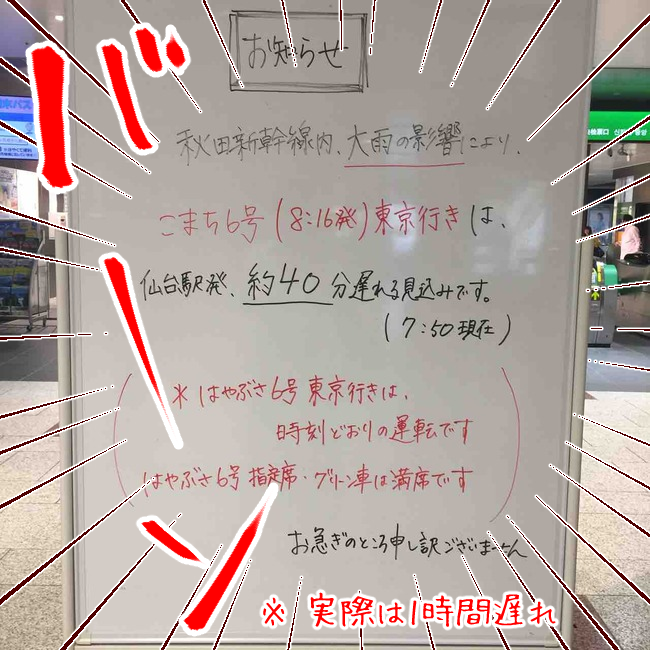 お知らせ
秋田新幹線内、大雨の影響により、
こまち6号(8:16発)東京行きは、
仙台駅発、約40分遅れる見込みです。
(7:50現在)
(※はやぶさ6号東京行きは、
時刻どおりの運転です
はやぶさ6号指定席・グリーン車は満席です)
お急ぎのところ申し訳ございません
バーン
※実際は1時間遅れ